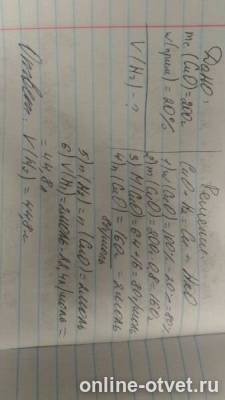 Дано:
m с (CuO) = 200г
w (прим) = 20%
V(H₂) - ?
Решение
CuO + H₂ = Cu + H₂O
1) w (CuO) = 100% - 20% = 80%
2) m (CuO) = 200 · 0,8 = 160г
3) M (CuO) = 64 + 16 = 80г/моль
4) n (CuO) = 160г = 2моль
80г/моль
5) n (H₂) = n (CuO) = 2моль
6) V(H₂) = 2моль · 22,4л/моль =
= 44,8л
Ответ: V(H₂) = 44,8л
online-otvet.ru